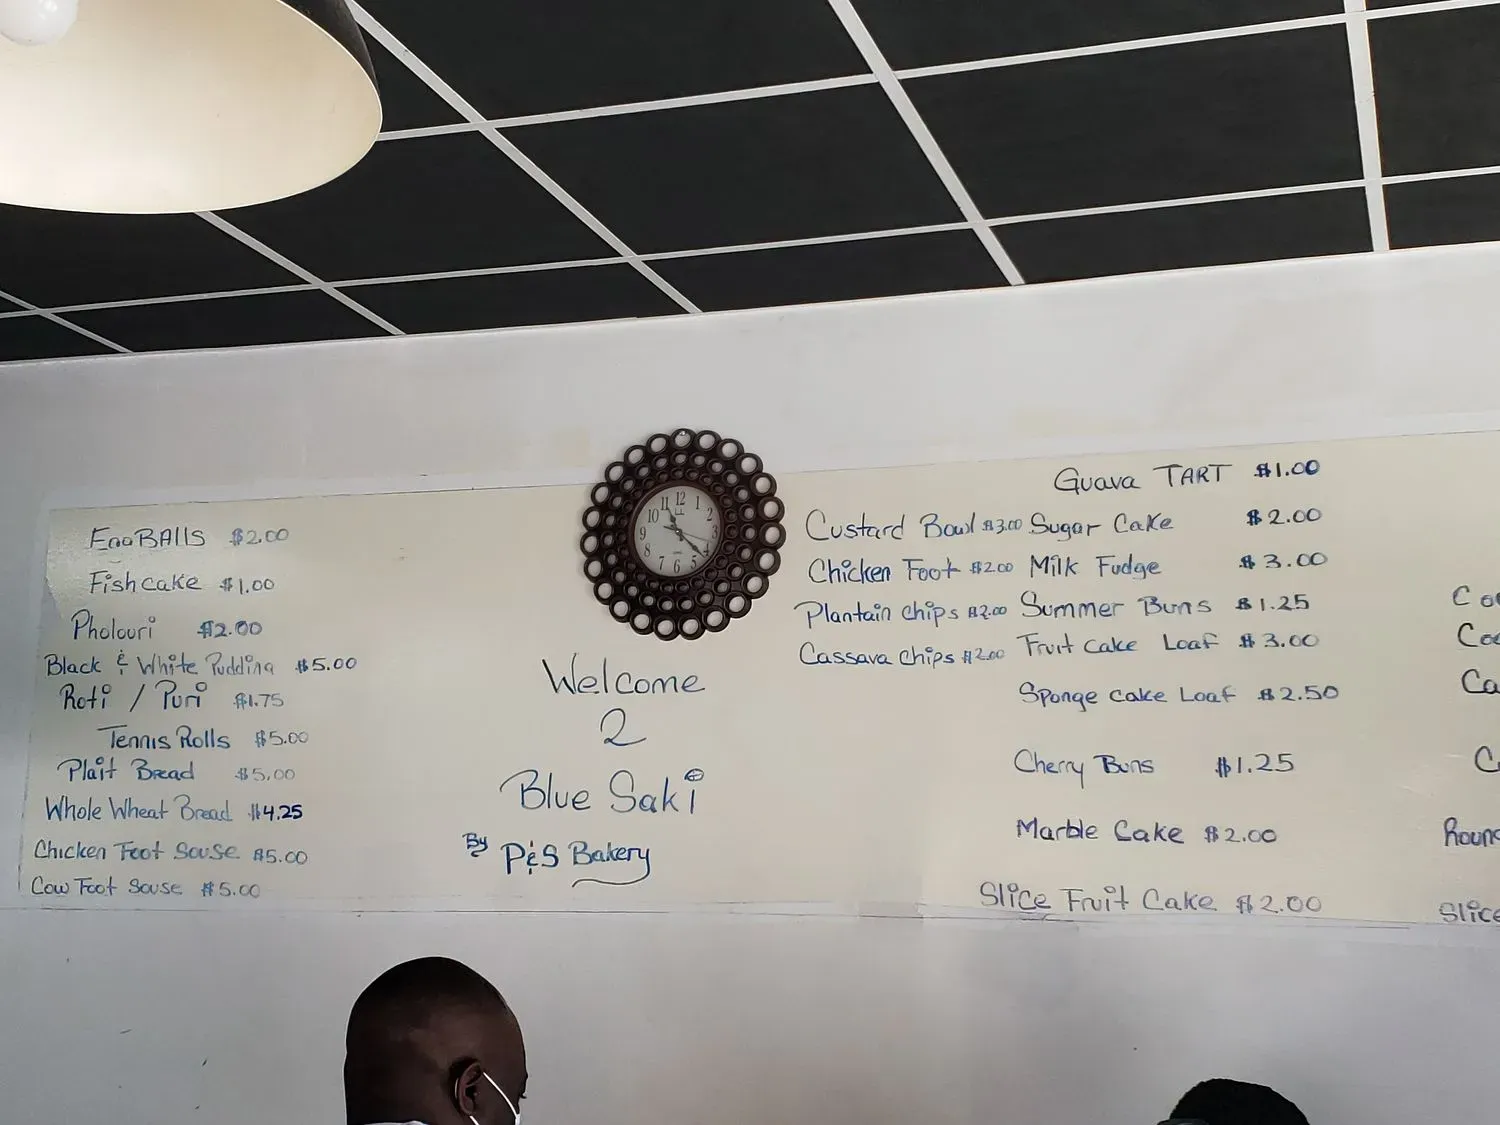 Egg BALLS $2.00
Fishcake $1.00
Pholouri $2.00
Black & White Pudding $5.00
Roti / Puri $1.75
Tennis Rolls $5.00
Plait Bread $5.00
Whole Wheat Bread $4.25
Chicken Foot Souse $5.00
Cow Foot Souse $5.00
12
1
2
3
4
5
6
7
8
9
10
11
Welcome
2
Blue Saki
By P&S Bakery
Custard Bowl $3.00
Chicken Foot $2.00
Plantain Chips $2.00
Cassava Chips $2.00
Guava TART $1.00
Sugar Cake $2.00
Milk Fudge $3.00
Summer Buns $1.25
Fruit Cake Loaf $3.00
Sponge Cake Loaf $2.50
Cherry Buns $1.25
Marble Cake $2.00
Slice Fruit Cake $2.00
Slice